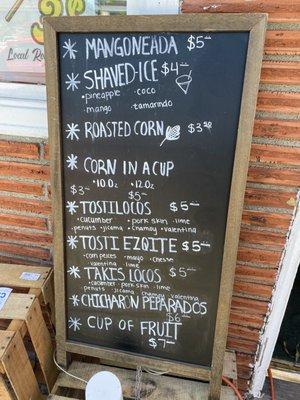 Local
* MANGONEADA $5
* SHAVED-ICE $4
• pineapple • coco
• mango • tamarindo
* ROASTED CORN $3.50
* CORN IN A CUP
• 10.0z • 12.0z
$3 $5
* TOSTILOCOS $5
• cucumber • pork skin • lime
penuts • jicama • chamoy • valentina
* TOSTI EZQITE $5
• corn peices • mayo • cheese
• valentina • lime
* TAKIS LOCOS $5
• cucumber • pork skin • lime
peenuts • jicama • chamoy • valentina
* CHICHARON PEPARADOS
$6
* CUP OF FRUIT
$7